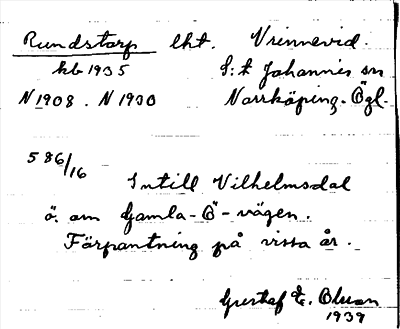 Rundstorp lht. Vrinnevid.
kb 1935 S:t Johannis sn
N 1908. N 1930 Norrköping. Ögl.
586/16
Intill Vilhelmsdal
ö. om Gamla-Ö-vägen.
Förpantning på vissa år.
Gustaf E. Olsson
1939